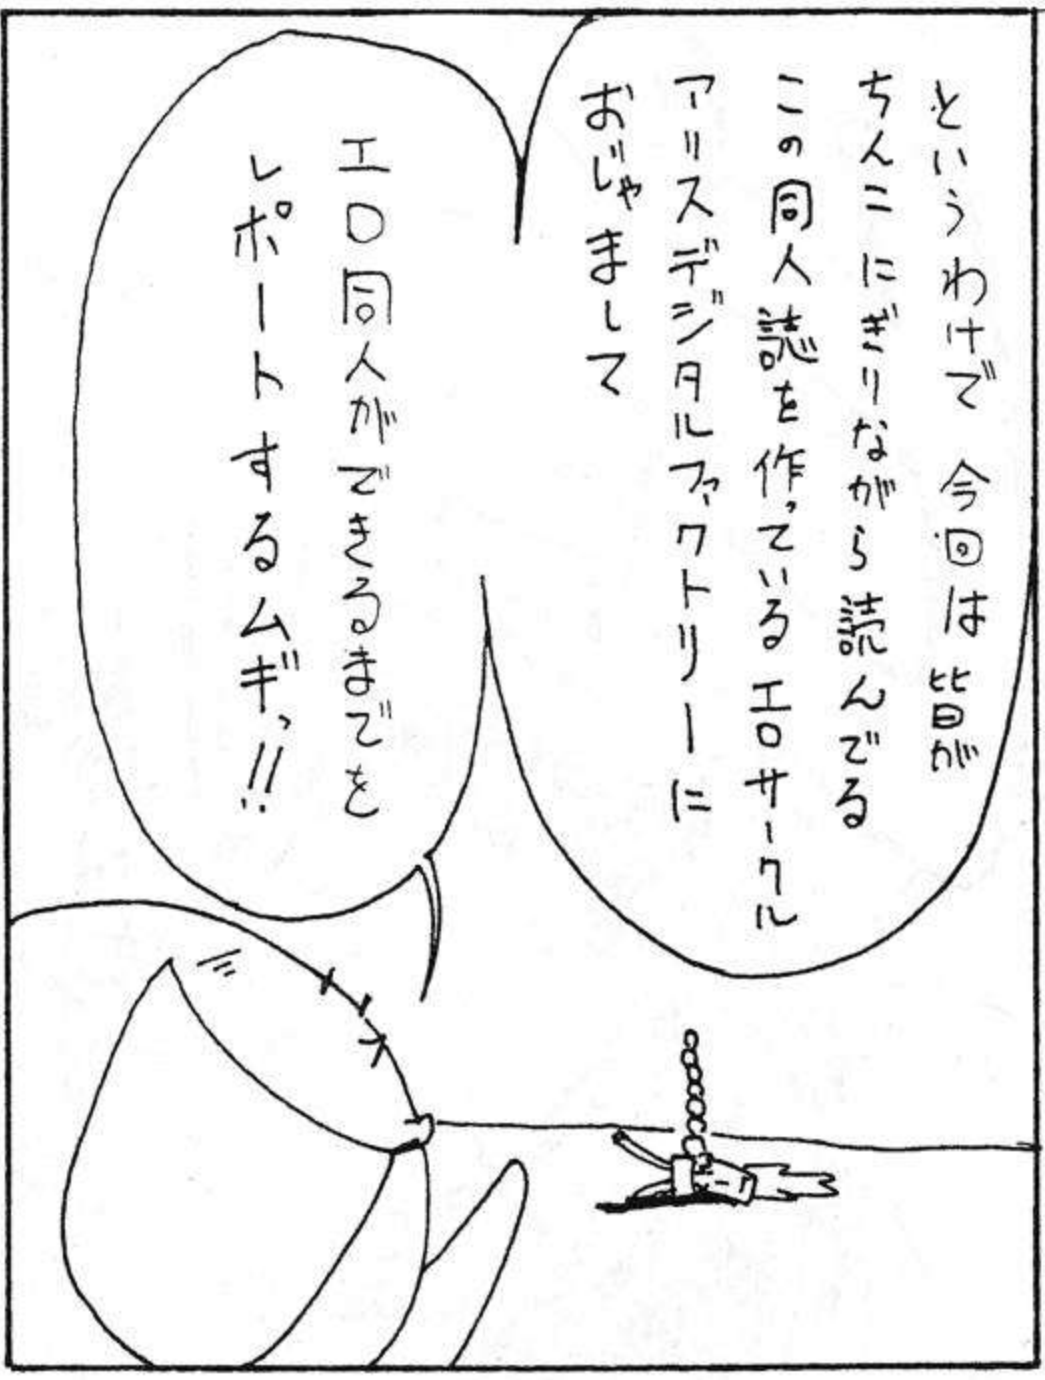 というわけで 今回は皆が
ちんこにぎりながら読んでる
この同人誌を作っているエロサークル
アリスデジタルファクトリーに
おじゃまして
エロ同人ができるまでを
レポートするムギっ!!